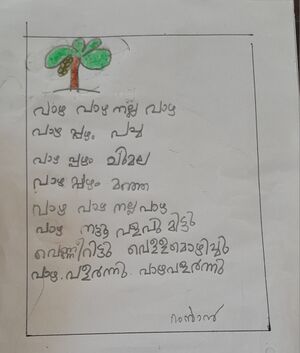 വാഴ വാഴ നല്ല വാഴ
വാഴ പ്പഴം പച്ച
വാഴ പ്പഴം ചിമല
വാഴ പ്പഴം മഞ്ഞ
വാഴ വാഴ നല്ല വാഴ
വാഴ നട്ടു വളവു മിട്ടു
വെണ്ണീറിട്ടു വെള്ളമൊഴിച്ചു
വാഴ വളർന്നു വാഴവളർന്നു
റംസാൻ